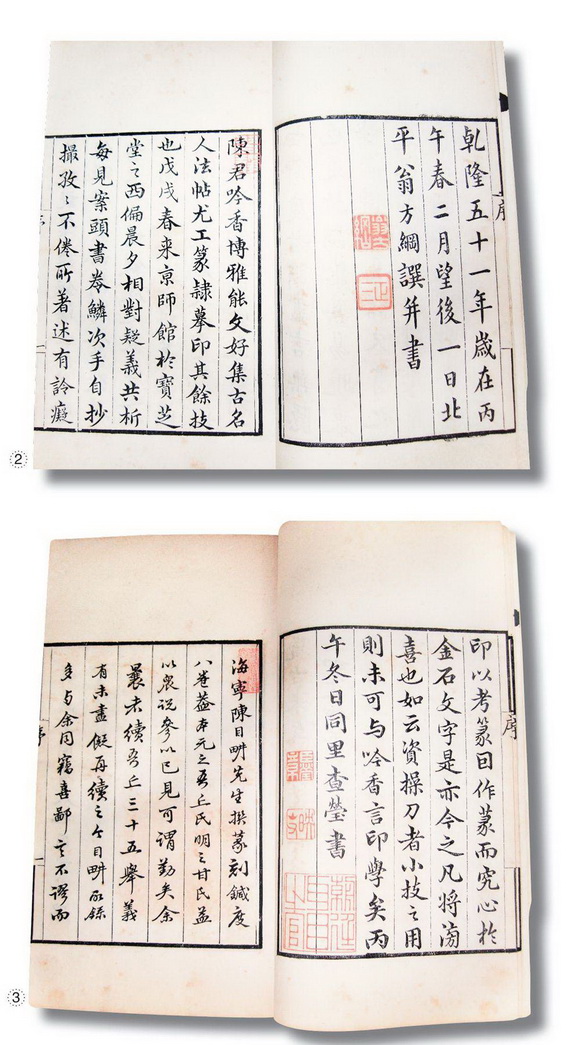 序
乾隆五十一年歲在丙
午春二月望後一日北
平翁方綱譔并書
陳君吟香博雅能文好集古名
人法帖尤工篆隸摹印其餘技
也戊戌春来京師館於寶芝
堂之西偏晨夕相對疑義共析
每見案頭書卷鱗次手自抄
撮孜〻不倦所著述有詅癡
②
序
印以考篆囙作篆而究心於
金石文字是亦今之凡将滂
喜也如云資操刀者小技之用
則未可与吟香言印學矣丙
午冬日同里查瑩書
海寧陳目畊先生撰篆刻鍼度
八卷葢本元之吾丘氏明之甘氏益
以衆说參以已見可谓勤矣余
曩未續吾丘三十五舉義
有未盡儗再續之今目畊所錄
多与余同竊喜鄙言不谬而
③